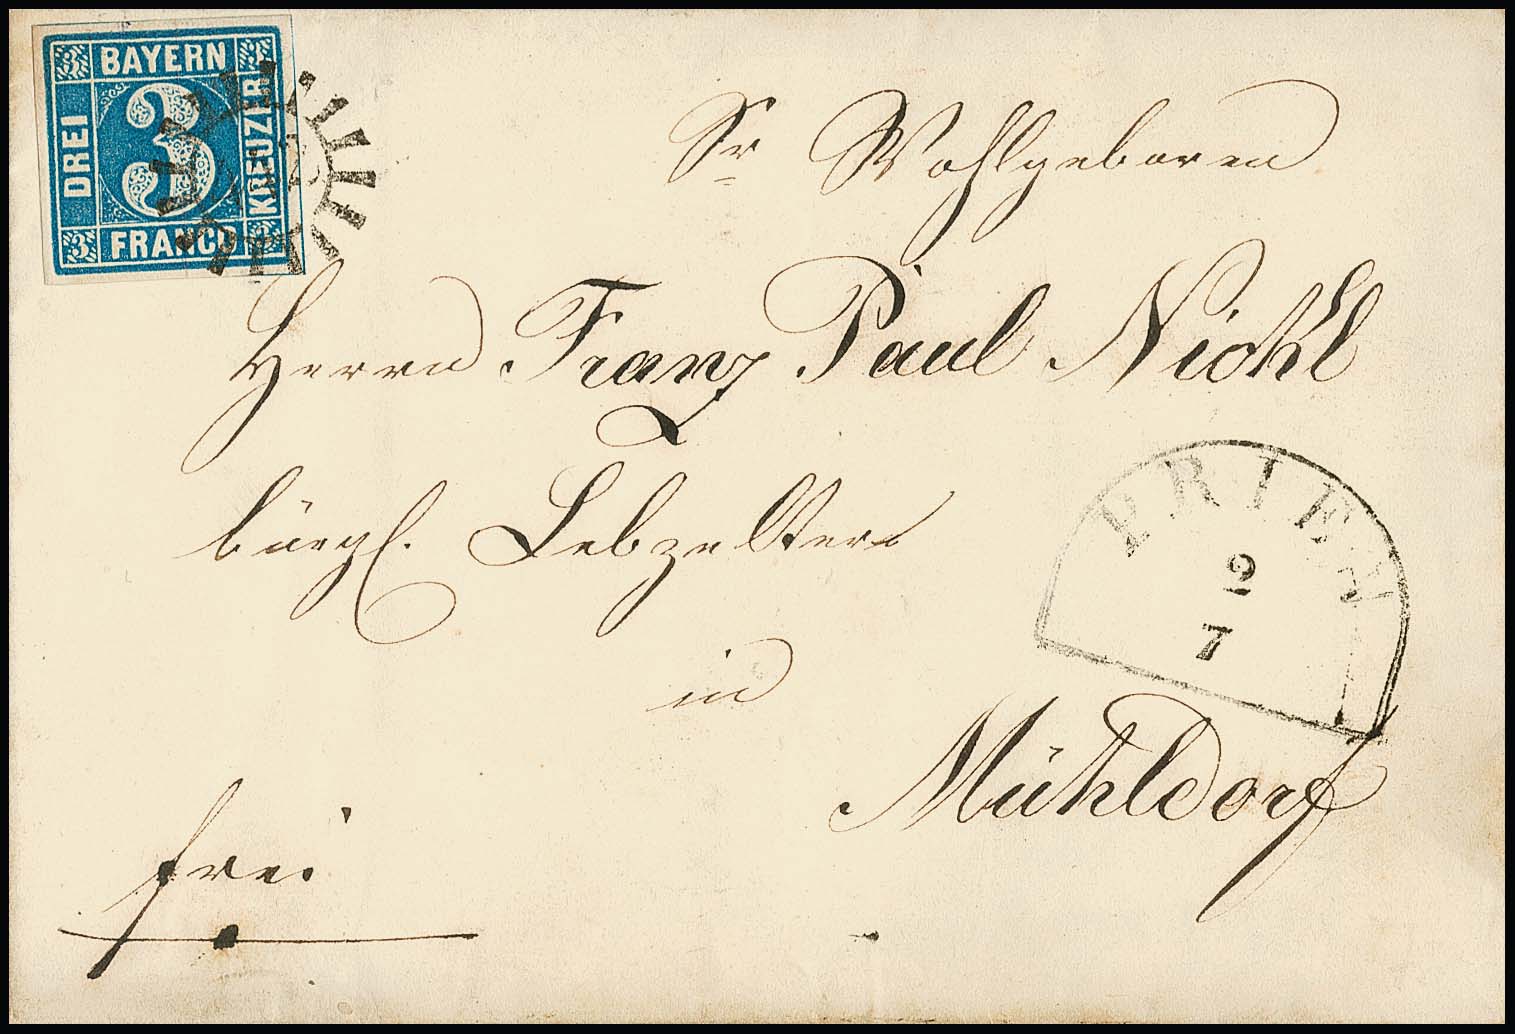 BAYERN
DREI
3
KREUZER
FRANCO
Sr Wohlgeboren
Herrn Franz Paul Nickl
bürgl. Lebzelter
in
PRIEN
2
7
Mühldorf
frei